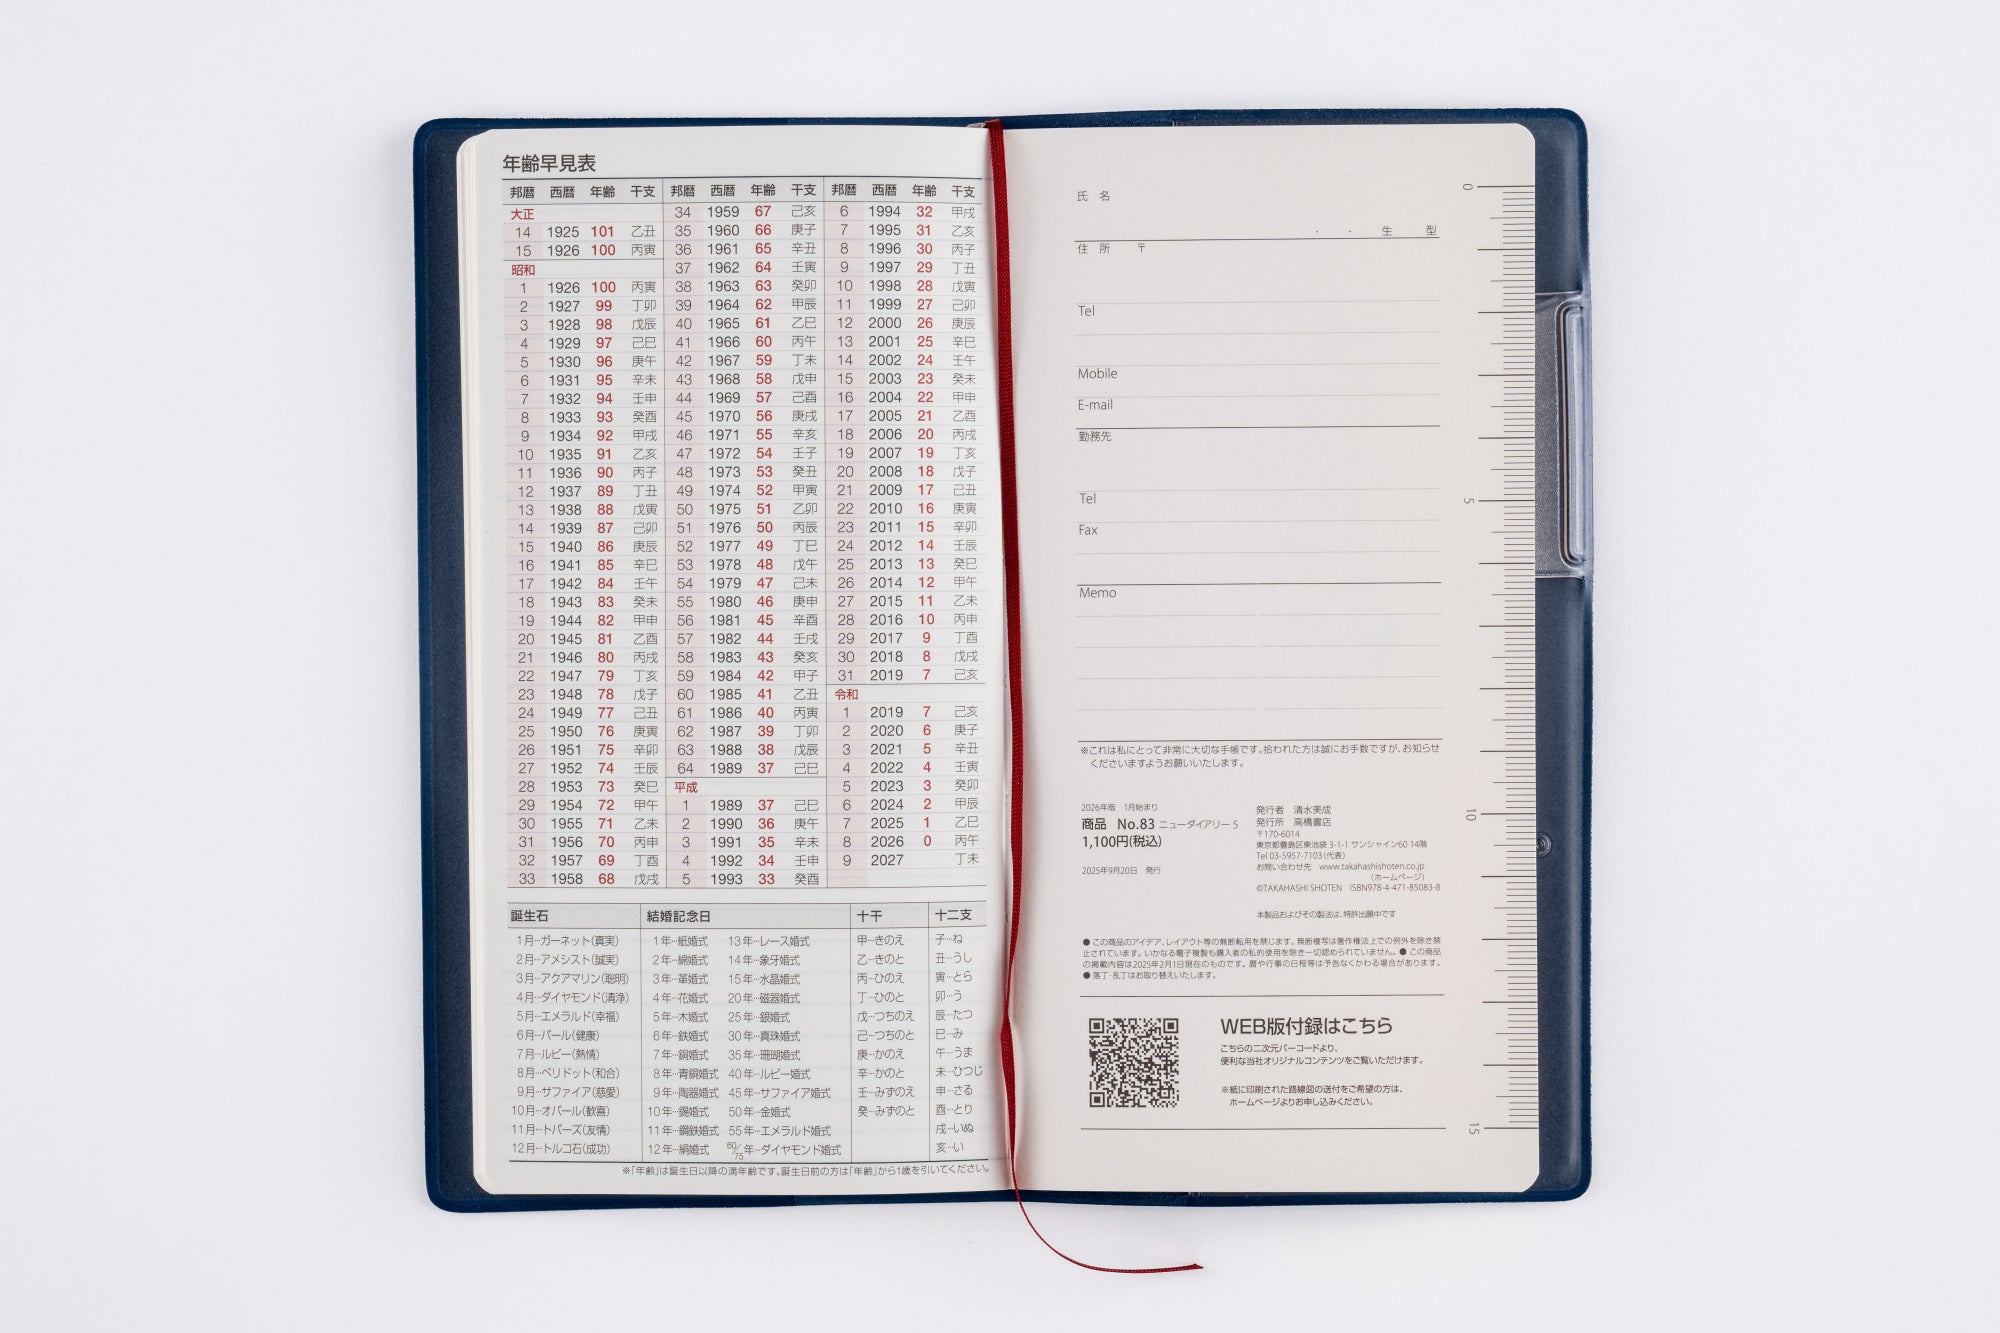 年齢早見表
邦暦 西暦 年齢 干支 邦暦 西暦 年齢 干支 邦暦 西暦 年齢 干支
大正 34 1959 67 己亥 6 1994 32 甲戌
14 1925 101 乙丑 35 1960 66 庚子 7 1995 31 乙亥
15 1926 100 丙寅 36 1961 65 辛丑 8 1996 30 丙子
昭和 37 1962 64 壬寅 9 1997 29 丁丑
1 1926 100 丙寅 38 1963 63 癸卯 10 1998 28 戊寅
2 1927 99 丁卯 39 1964 62 甲辰 11 1999 27 己卯
3 1928 98 戊辰 40 1965 61 乙巳 12 2000 26 庚辰
4 1929 97 己巳 41 1966 60 丙午 13 2001 25 辛巳
5 1930 96 庚午 42 1967 59 丁未 14 2002 24 壬午
6 1931 95 辛未 43 1968 58 戊申 15 2003 23 癸未
7 1932 94 壬申 44 1969 57 己酉 16 2004 22 甲申
8 1933 93 癸酉 45 1970 56 庚戌 17 2005 21 乙酉
9 1934 92 甲戌 46 1971 55 辛亥 18 2006 20 丙戌
10 1935 91 乙亥 47 1972 54 壬子 19 2007 19 丁亥
11 1936 90 丙子 48 1973 53 癸丑 20 2008 18 戊子
12 1937 89 丁丑 49 1974 52 甲寅 21 2009 17 己丑
13 1938 88 戊寅 50 1975 51 乙卯 22 2010 16 庚寅
14 1939 87 己卯 51 1976 50 丙辰 23 2011 15 辛卯
15 1940 86 庚辰 52 1977 49 丁巳 24 2012 14 壬辰
16 1941 85 辛巳 53 1978 48 戊午 25 2013 13 癸巳
17 1942 84 壬午 54 1979 47 己未 26 2014 12 甲午
18 1943 83 癸未 55 1980 46 庚申 27 2015 11 乙未
19 1944 82 甲申 56 1981 45 辛酉 28 2016 10 丙申
20 1945 81 乙酉 57 1982 44 壬戌 29 2017 9 丁酉
21 1946 80 丙戌 58 1983 43 癸亥 30 2018 8 戊戌
22 1947 79 丁亥 59 1984 42 甲子 31 2019 7 己亥
23 1948 78 戊子 60 1985 41 乙丑 令和
24 1949 77 己丑 61 1986 40 丙寅 1 2019 7 己亥
25 1950 76 庚寅 62 1987 39 丁卯 2 2020 6 庚子
26 1951 75 辛卯 63 1988 38 戊辰 3 2021 5 辛丑
27 1952 74 壬辰 64 1989 37 己巳 4 2022 4 壬寅
28 1953 73 癸巳 平成 5 2023 3 癸卯
29 1954 72 甲午 1 1989 37 己巳 6 2024 2 甲辰
30 1955 71 乙未 2 1990 36 庚午 7 2025 1 乙巳
31 1956 70 丙申 3 1991 35 辛未 8 2026 0 丙午
32 1957 69 丁酉 4 1992 34 壬申 9 2027 丁未
33 1958 68 戊戌 5 1993 33 癸酉
誕生石 結婚記念日 十干 十二支
1月…ガーネット(真実) 1年…紙婚式 13年…レース婚式 甲…きのえ 子…ね
2月…アメシスト(誠実) 2年…綿婚式 14年…象牙婚式 乙…きのと 丑…うし
3月…アクアマリン(聡明) 3年…革婚式 15年…水晶婚式 丙…ひのえ 寅…とら
4月…ダイヤモンド(清浄) 4年…花婚式 20年…磁器婚式 丁…ひのと 卯…う
5月…エメラルド(幸福) 5年…木婚式 25年…銀婚式 戊…つちのえ 辰…たつ
6月…パール(健康) 6年…鉄婚式 30年…真珠婚式 己…つちのと 巳…み
7月…ルビー(熱情) 7年…銅婚式 35年…珊瑚婚式 庚…かのえ 午…うま
8月…ペリドット(和合) 8年…青銅婚式 40年…ルビー婚式 辛…かのと 未…ひつじ
9月…サファイア(慈愛) 9年…陶器婚式 45年…サファイア婚式 壬…みずのえ 申…さる
10月…オパール(歓喜) 10年…錫婚式 50年…金婚式 癸…みずのと 酉…とり
11月…トパーズ(友情) 11年…鋼鉄婚式 55年…エメラルド婚式 戌…いぬ
12月…トルコ石(成功) 12年…絹婚式 60/75年…ダイヤモンド婚式 亥…い
※「年齢」は誕生日以降の満年齢です。誕生日前の方は「年齢」から1歳を引いてください。
氏 名
・ ・ 生 型
住 所 〒
Tel
Mobile
E-mail
勤務先
Tel
Fax
Memo
※これは私にとって非常に大切な手帳です。拾われた方は誠にお手数ですが、お知らせ
くださいますようお願いいたします。
2026年版 1月始まり
商品 No.83 ニューダイアリー 5
1,100円(税込)
2025年9月20日 発行
発行者 清水美成
発行所 高橋書店
〒170-6014
東京都豊島区東池袋 3-1-1 サンシャイン60 14階
Tel 03-5957-7103(代表)
お問い合わせ先 www.takahashishoten.co.jp
(ホームページ)
©TAKAHASHI SHOTEN ISBN978-4-471-85083-8
本製品およびその製法は、特許出願中です
● この商品のアイデア、レイアウト等の無断転用を禁じます。無断複写は著作権法上での例外を除き禁
止されています。いかなる電子複製も購入者の私的使用を除き一切認められていません。● この商品
の掲載内容は2025年2月1日現在のものです。暦や行事の日程等は予告なくかわる場合があります。
● 落丁・乱丁はお取り替えいたします。
WEB版付録はこちら
こちらの二次元バーコードより、
便利な当社オリジナルコンテンツをご覧いただけます。
※紙に印刷された路線図の送付をご希望の方は、
ホームページよりお申し込みください。
0
5
10
15